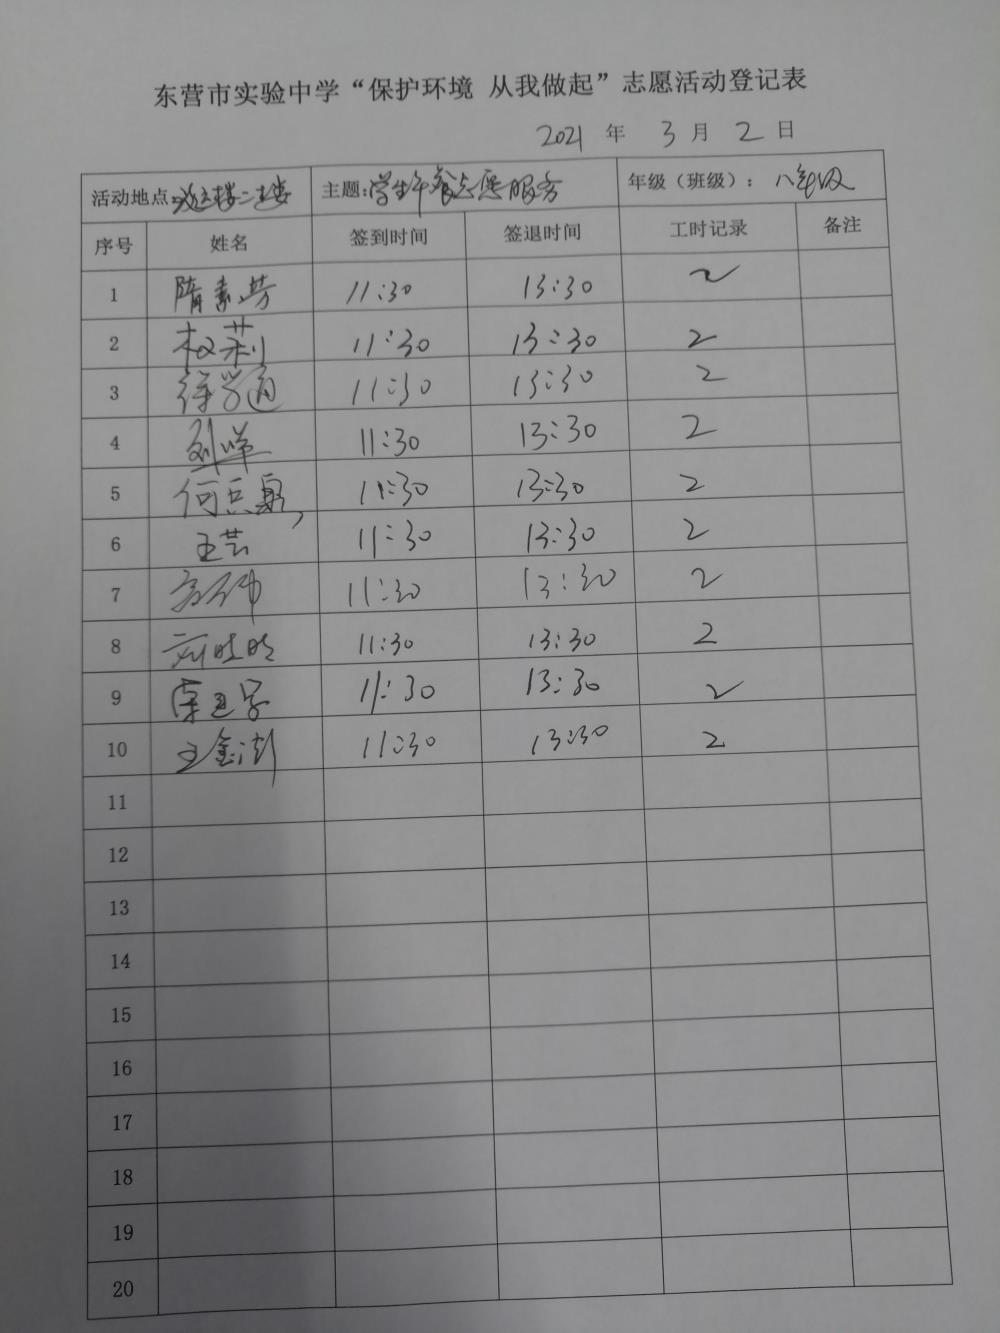 东营市实验中学“保护环境 从我做起”志愿活动登记表
2021 年 3 月 2 日
活动地点: 二楼 主题:学生午餐志愿服务 年级（班级）: 八年级
序号 姓名 签到时间 签退时间 工时记录 备注
1 隋素芳 11:30 13:30 2
2 权莉 11:30 13:30 2
3 徐学通 11:30 13:30 2
4 刘 11:30 13:30 2
5 何兵 11:30 13:30 2
6 王芸 11:30 13:30 2
7 11:30 13:30 2
8 11:30 13:30 2
9 11:30 13:30 2
10 王金澎 11:30 13:30 2
11
12
13
14
15
16
17
18
19
20